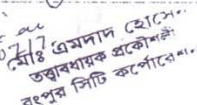 মোঃ এমদাদ হোসেন
তত্ত্বাবধায়ক প্রকৌশলী
রংপুর সিটি কর্পোরেশন।